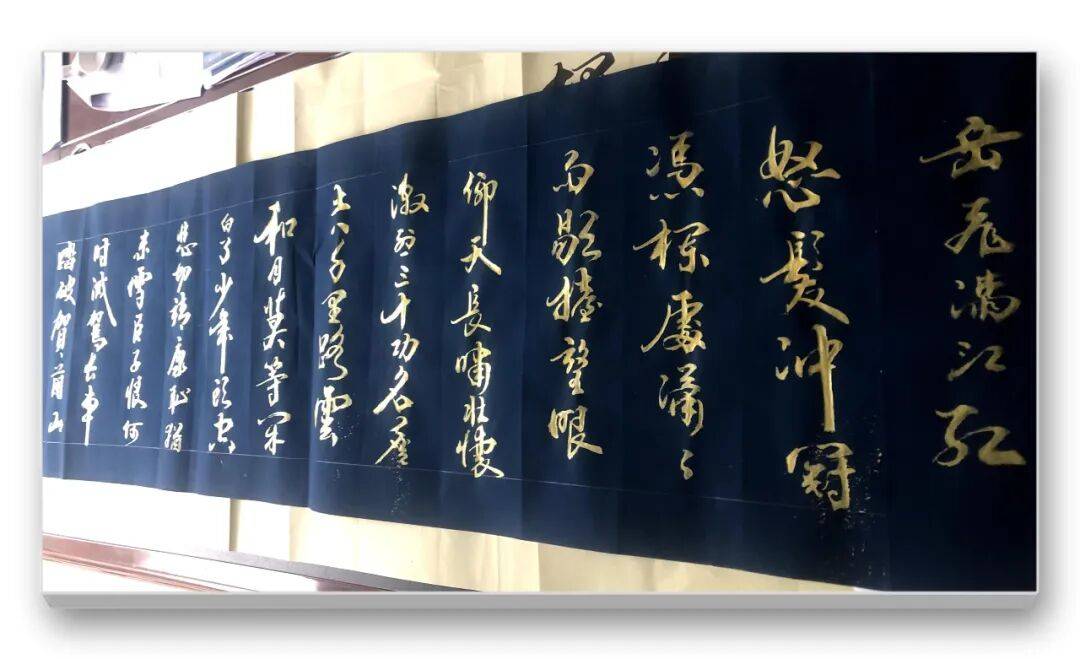 岳飛滿江紅
怒髮沖冠
馮欄處瀟々
雨歇擡望眼
仰天長嘯壯懷
激烈三十功名塵
土八千里路雲
和月莫等閑
白了少年頭空
悲切靖康恥猶
未雪臣子恨何
時滅駕長車
踏破賀蘭山